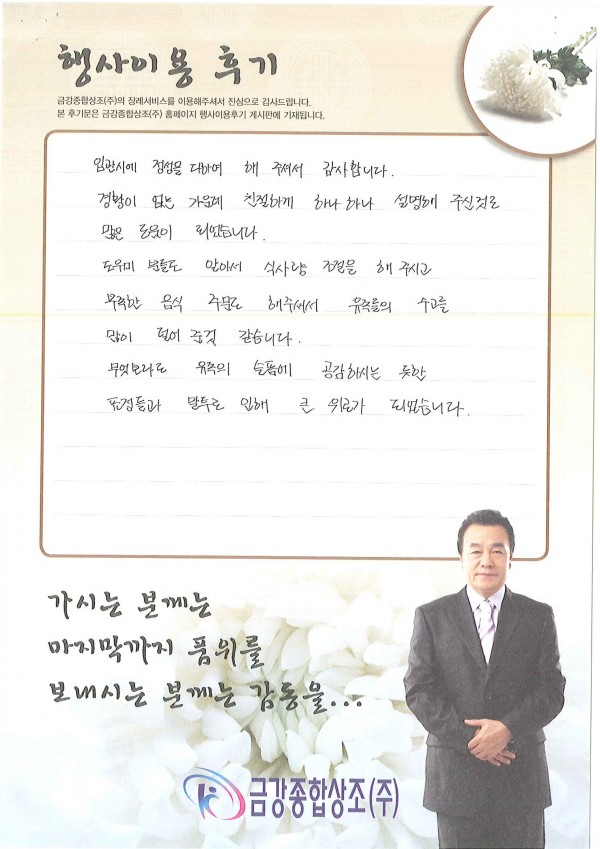 행사이용 후기
금강종합상조(주)의 장례서비스를 이용해주셔서 진심으로 감사드립니다.
본 후기문은 금강종합상조(주) 홈페이지 행사이용후기 게시판에 기재됩니다.
입관시에 정성을 다하여 해 주셔서 감사합니다.
경황이 없는 가운데 친절하게 하나하나 설명해 주신것로
많은 도움이 되었습니다.
도우미 분들도 알아서 식사량 조절을 해 주시고
부족한 음식 주문도 해주셔서 유족들의 수고를
많이 덜어 준것 같습니다.
무엇보다도 유족의 슬픔에 공감하시는 듯한
표정들과 말투로 인해 큰 위로가 되었습니다.
가시는 분께는
마지막까지 품위를
보내시는 분께는 감동을...
금강종합상조(주)